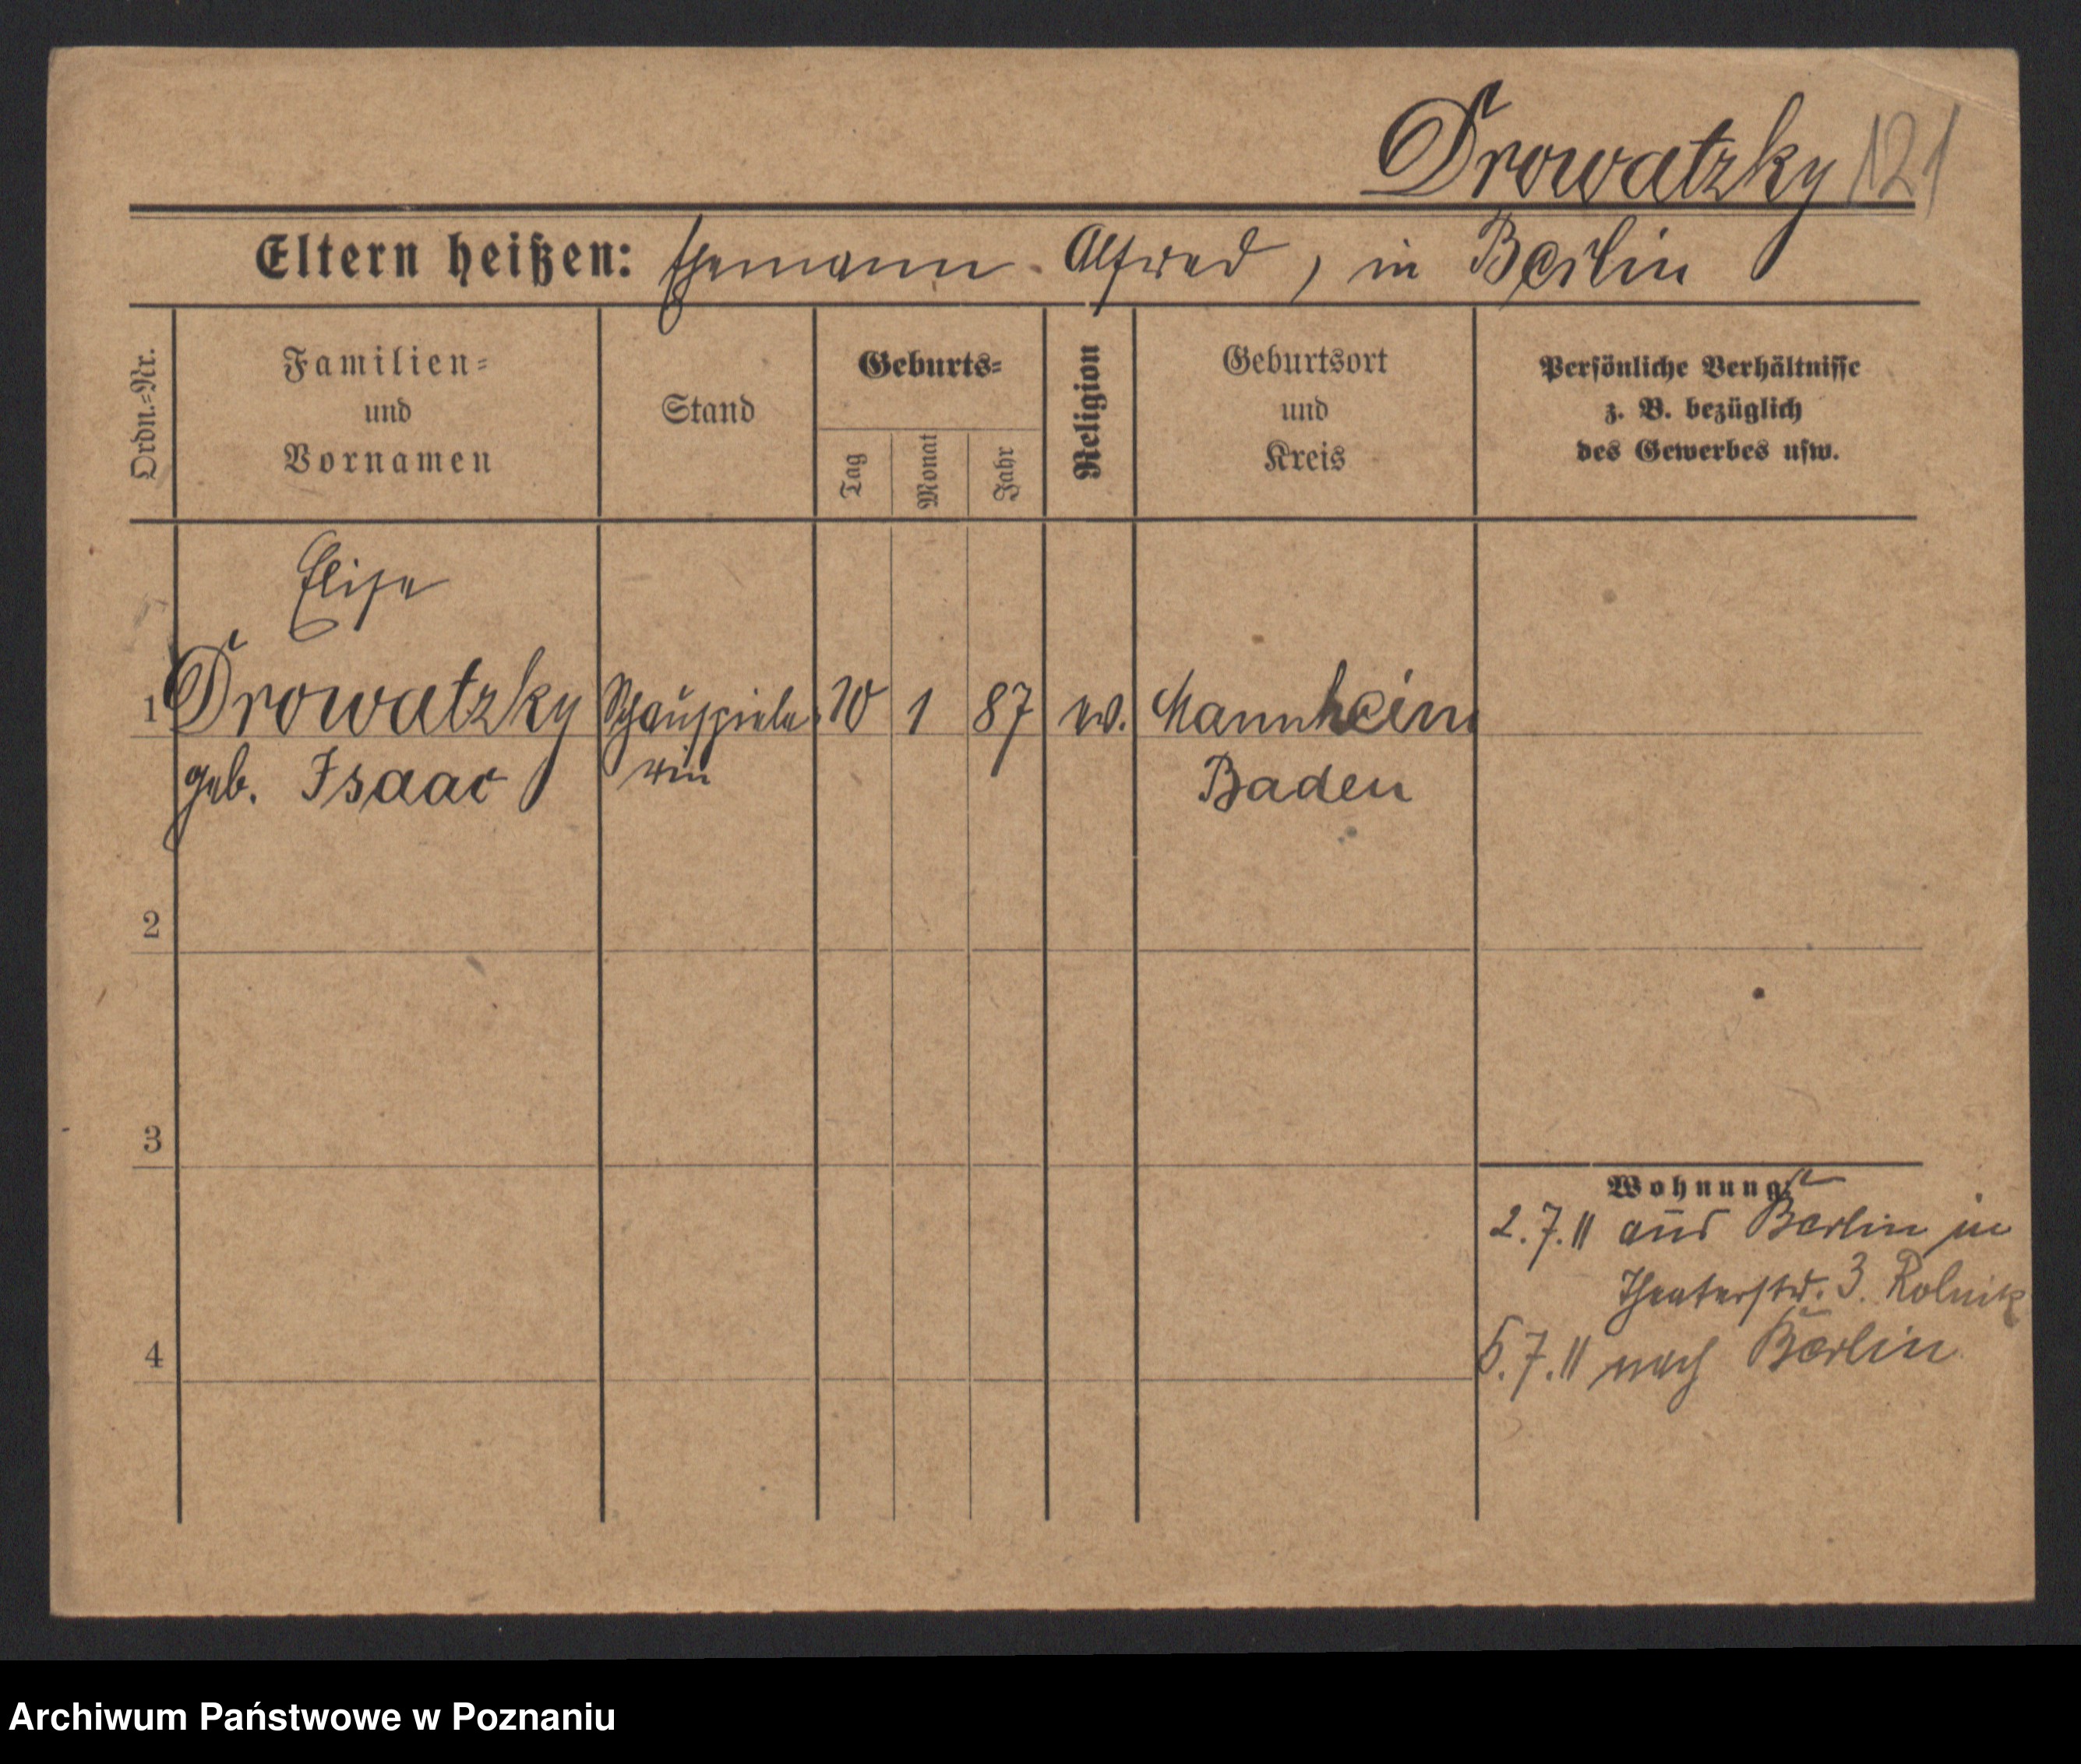 Drowatzky 121
Eltern heißen: Ehemann Alfred, in Berlin
Ordn.-Nr.
Familien-
und
Vornamen
Stand
Geburts-
Tag
Monat
Jahr
Religion
Geburtsort
und
Kreis
Persönliche Verhältnisse
z. B. bezüglich
des Gewerbes usw.
Elise
1 Drowatzky Schauspiele 10 1 87 ev. Mannheim
geb. Isaac rin Baden
2
3
Wohnung:
2.7.11 aus Berlin in
Theaterstr. 3. Rolnik
4
5.7.11 nach Berlin
Archiwum Państwowe w Poznaniu